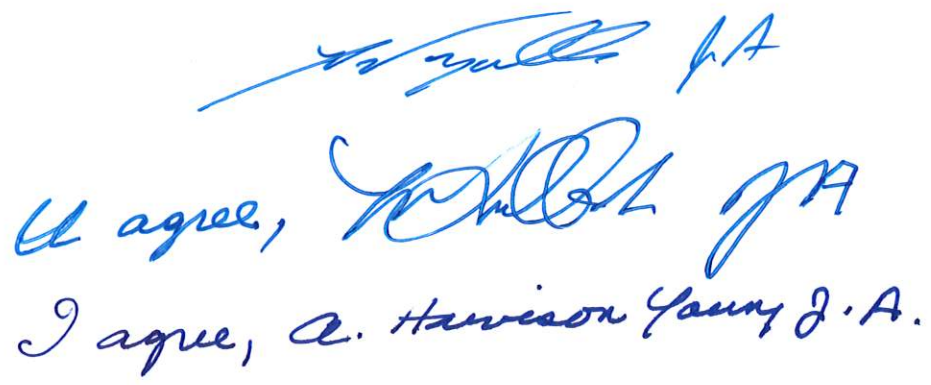 J.A
I agree, JA
I agree, A. Harvison Young J.A.